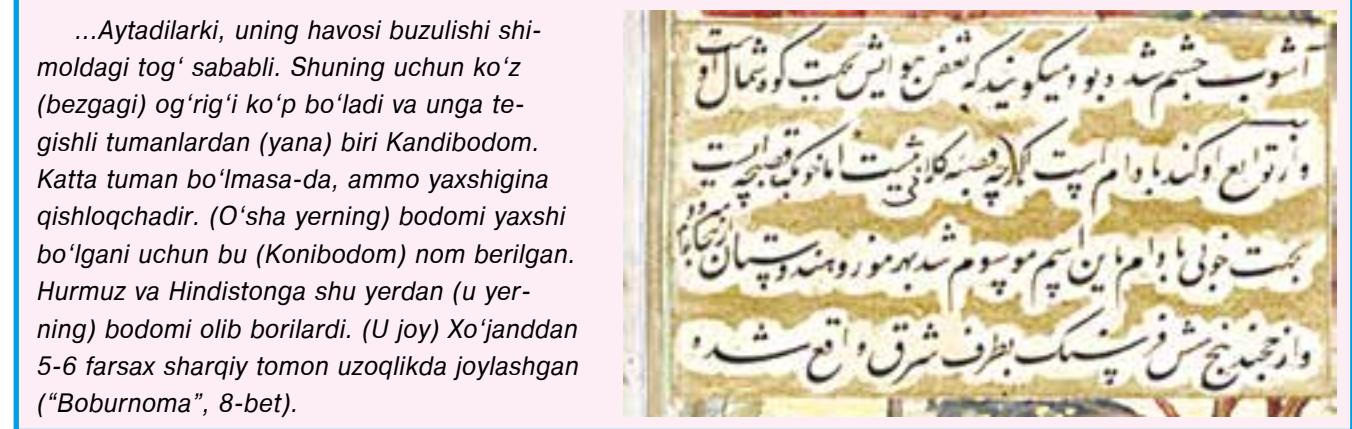 ...Aytadilarki, uning havosi buzulishi shi-
moldagi tog‘ sababli. Shuning uchun ko‘z
(bezgagi) og‘rig‘i ko‘p bo‘ladi va unga te-
gishli tumanlardan (yana) biri Kandibodom.
Katta tuman bo‘lmasa-da, ammo yaxshigina
qishloqchadir. (O‘sha yerning) bodomi yaxshi
bo‘lgani uchun bu (Konibodom) nom berilgan.
Hurmuz va Hindistonga shu yerdan (u yer-
ning) bodomi olib borilardi. (U joy) Xo‘janddan
5-6 farsax sharqiy tomon uzoqlikda joylashgan
(“Boburnoma”, 8-bet).
آشوب چشم شد و بود میگویند که تعفن هوایش بجهت کوه شمال او
و از توابع او کند بادام است اگرچه قصبه کلانی نیست اما خوبک قصبچه ایست
بجهت خوبی بادام باین اسم موسوم شد بهرموز و هندوستان از همانجا بادام میرود
و از خجند پنج شش فرسنگ بطرف شرق واقع شده